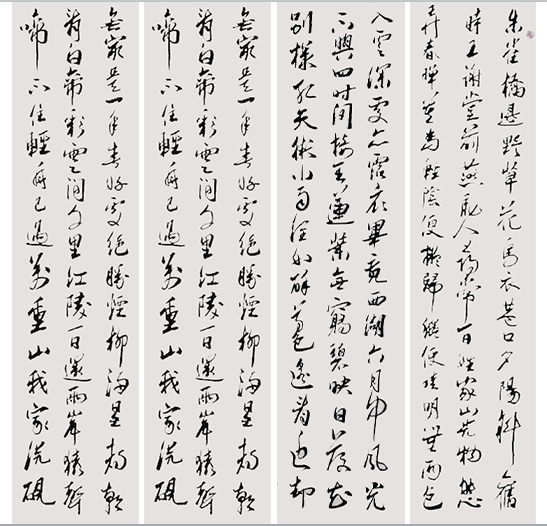 朱雀橋邊野草花烏衣巷口夕陽斜舊
時王謝堂前燕飛入尋常百姓家山光物態
弄春暉莫為輕陰便擬歸縱使晴明無雨色
入雲深處亦霑衣畢竟西湖六月中風光
不與四時同接天蓮葉無窮碧映日荷花
別樣紅天街小雨潤如酥草色遙看近却
無最是一年春好處絕勝煙柳滿皇都朝
辭白帝彩雲間千里江陵一日還兩岸猿聲
啼不住輕舟已過萬重山我家洗硯
無最是一年春好處絕勝煙柳滿皇都朝
辭白帝彩雲間千里江陵一日還兩岸猿聲
啼不住輕舟已過萬重山我家洗硯